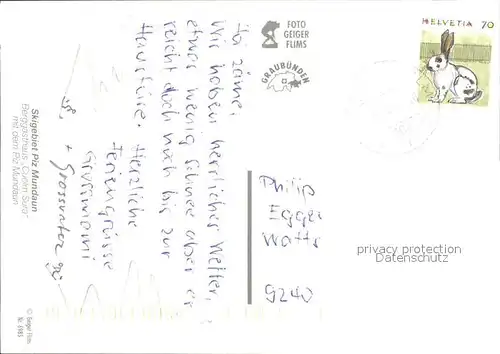 Hoi zäme!
Wir haben herrliches Wetter,
etwas wenig Schnee aber er
reicht doch noch bis zur
Haustüre. Herzliche
Feriengrüsse
Grossmami
+ Grossvater
Skigebiet Piz Mundaun
Berggasthaus "Cuolm Sura"
mit dem Piz Mundaun
© Geiger Flims
Nr. 6985
FOTO
GEIGER
FLIMS
GRAUBÜNDEN
HELVETIA 70
Philip
Egger
Watts
9240
privacy protection
Datenschutz